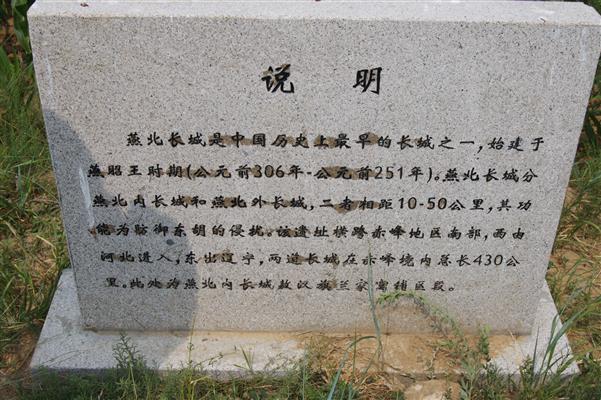 说明
燕北长城是中国历史上最早的长城之一,始建于
燕昭王时期(公元前306年-公元前251年)。燕北长城分
燕北内长城和燕北外长城,二者相距10-50公里,其功
能为防御东胡的侵扰。该遗址横跨赤峰地区南部,西由
河北进入,东出辽宁,两道长城在赤峰境内总长430公
里。此处为燕北内长城敖汉旗兰家窝铺区段。